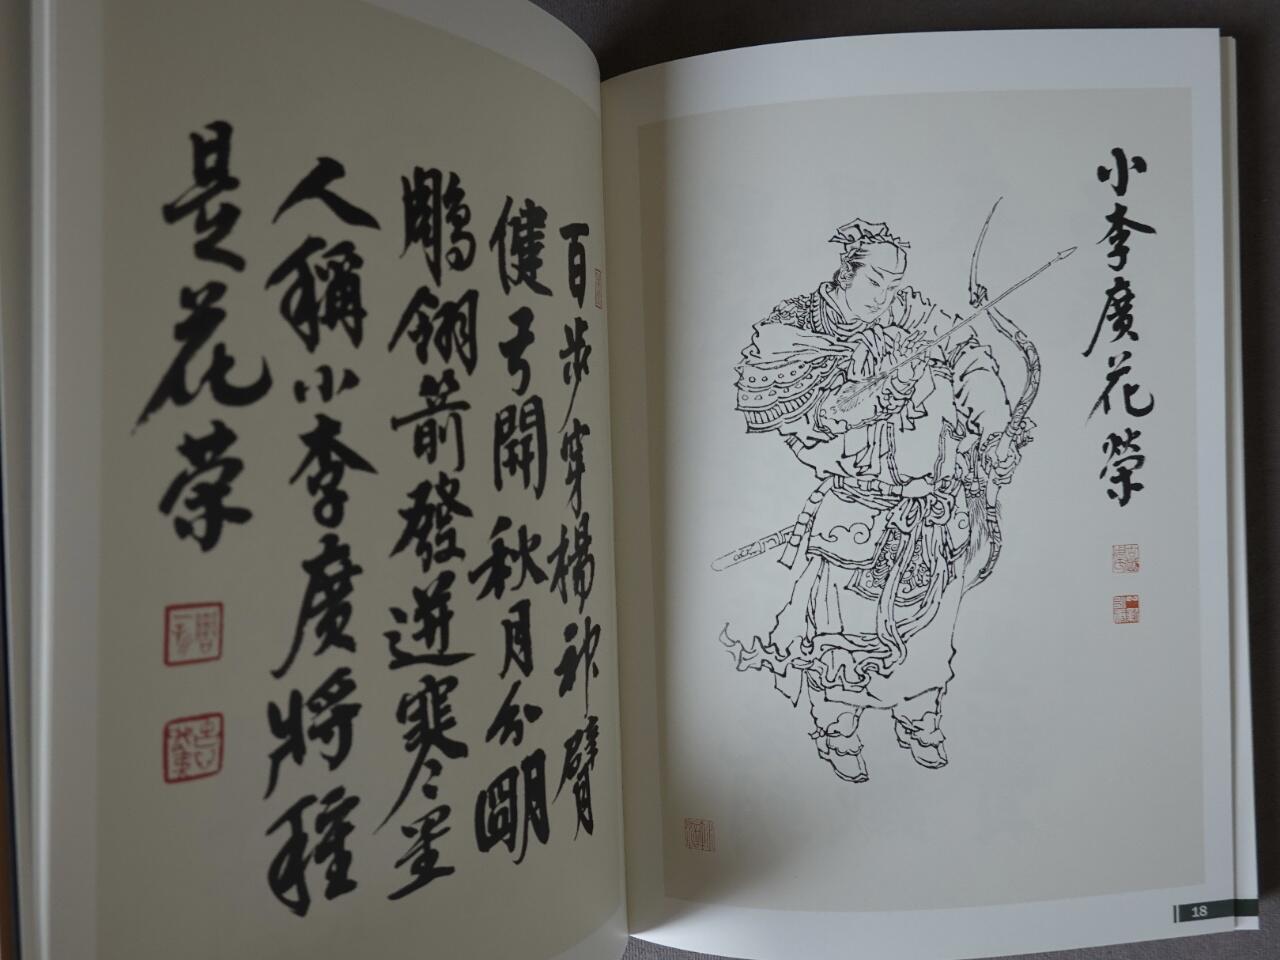 百步穿楊神臂
健弓開秋月分明
鵰翎箭發迸寒星
人稱小李廣將種
是花荣
小李廣花榮
18